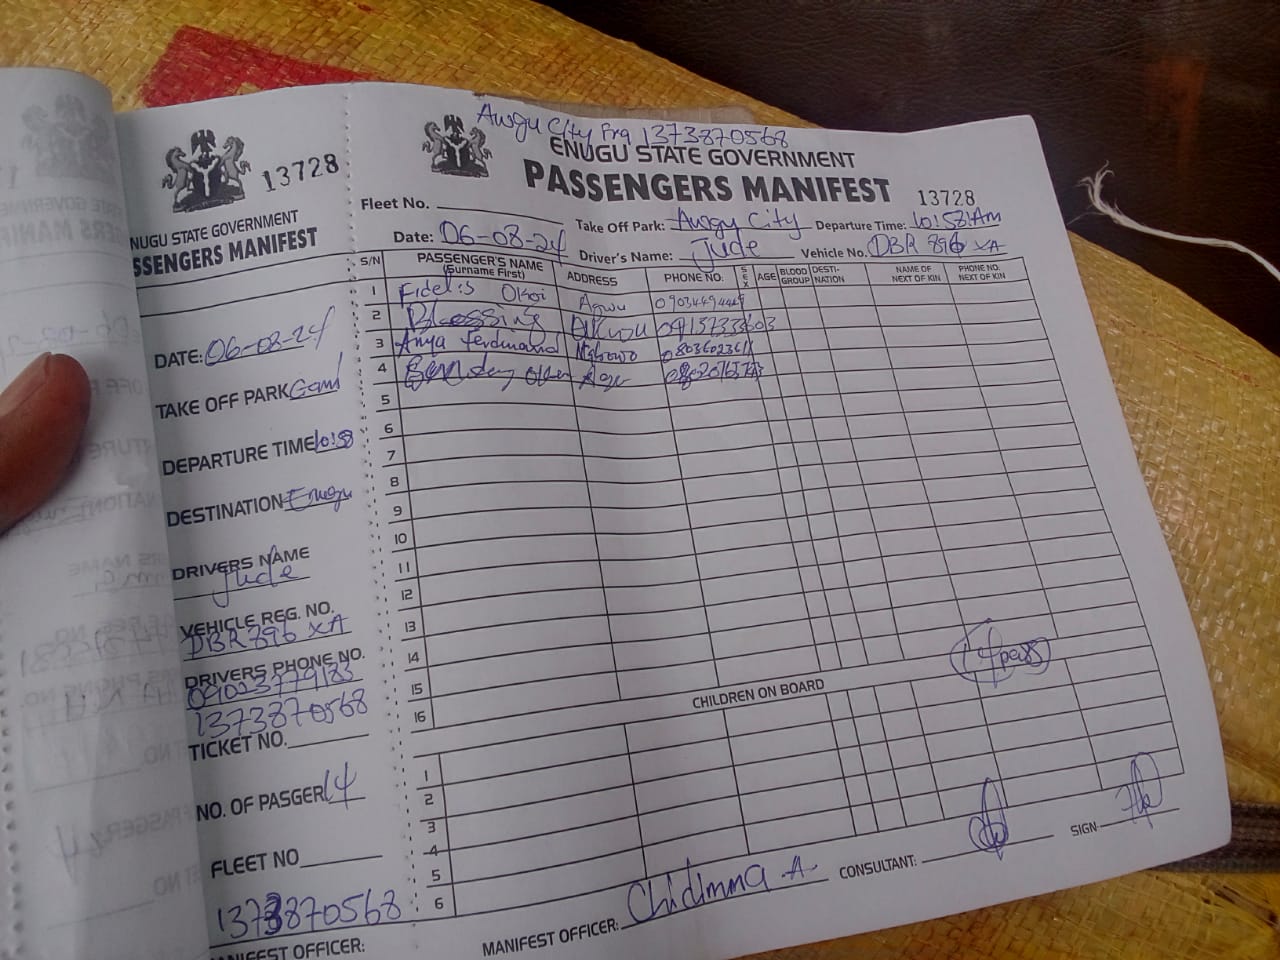 13728
ENUGU STATE GOVERNMENT
PASSENGERS MANIFEST
DATE: 06-08-24
TAKE OFF PARK
DEPARTURE TIME 10:58
DESTINATION Enugu
DRIVERS NAME
Jude
VEHICLE REG. NO.
DBR 896 XA
DRIVERS PHONE NO.
1373870568
TICKET NO.
NO. OF PASGER 14
FLEET NO
1373870568
MANIFEST OFFICER:
Awgu City Frq 1373870568
ENUGU STATE GOVERNMENT
PASSENGERS MANIFEST 13728
Fleet No. Take Off Park: Awgu City Departure Time: 10:58 Am
Date: 06-08-24 Driver's Name: Jude Vehicle No. DBR 896 XA
S/N PASSENGER'S NAME (Surname First) ADDRESS PHONE NO. SEX AGE BLOOD GROUP DESTI-NATION NAME OF NEXT OF KIN PHONE NO. NEXT OF KIN
1 Fidelis Okoi Agwu
2 Blessing
3 Anya Ferdinand
4
5
6
7
8
9
10
11
12
13
14
15
16
14 pass
CHILDREN ON BOARD
1
2
3
4
5
6
MANIFEST OFFICER: Chidimma A. CONSULTANT: SIGN